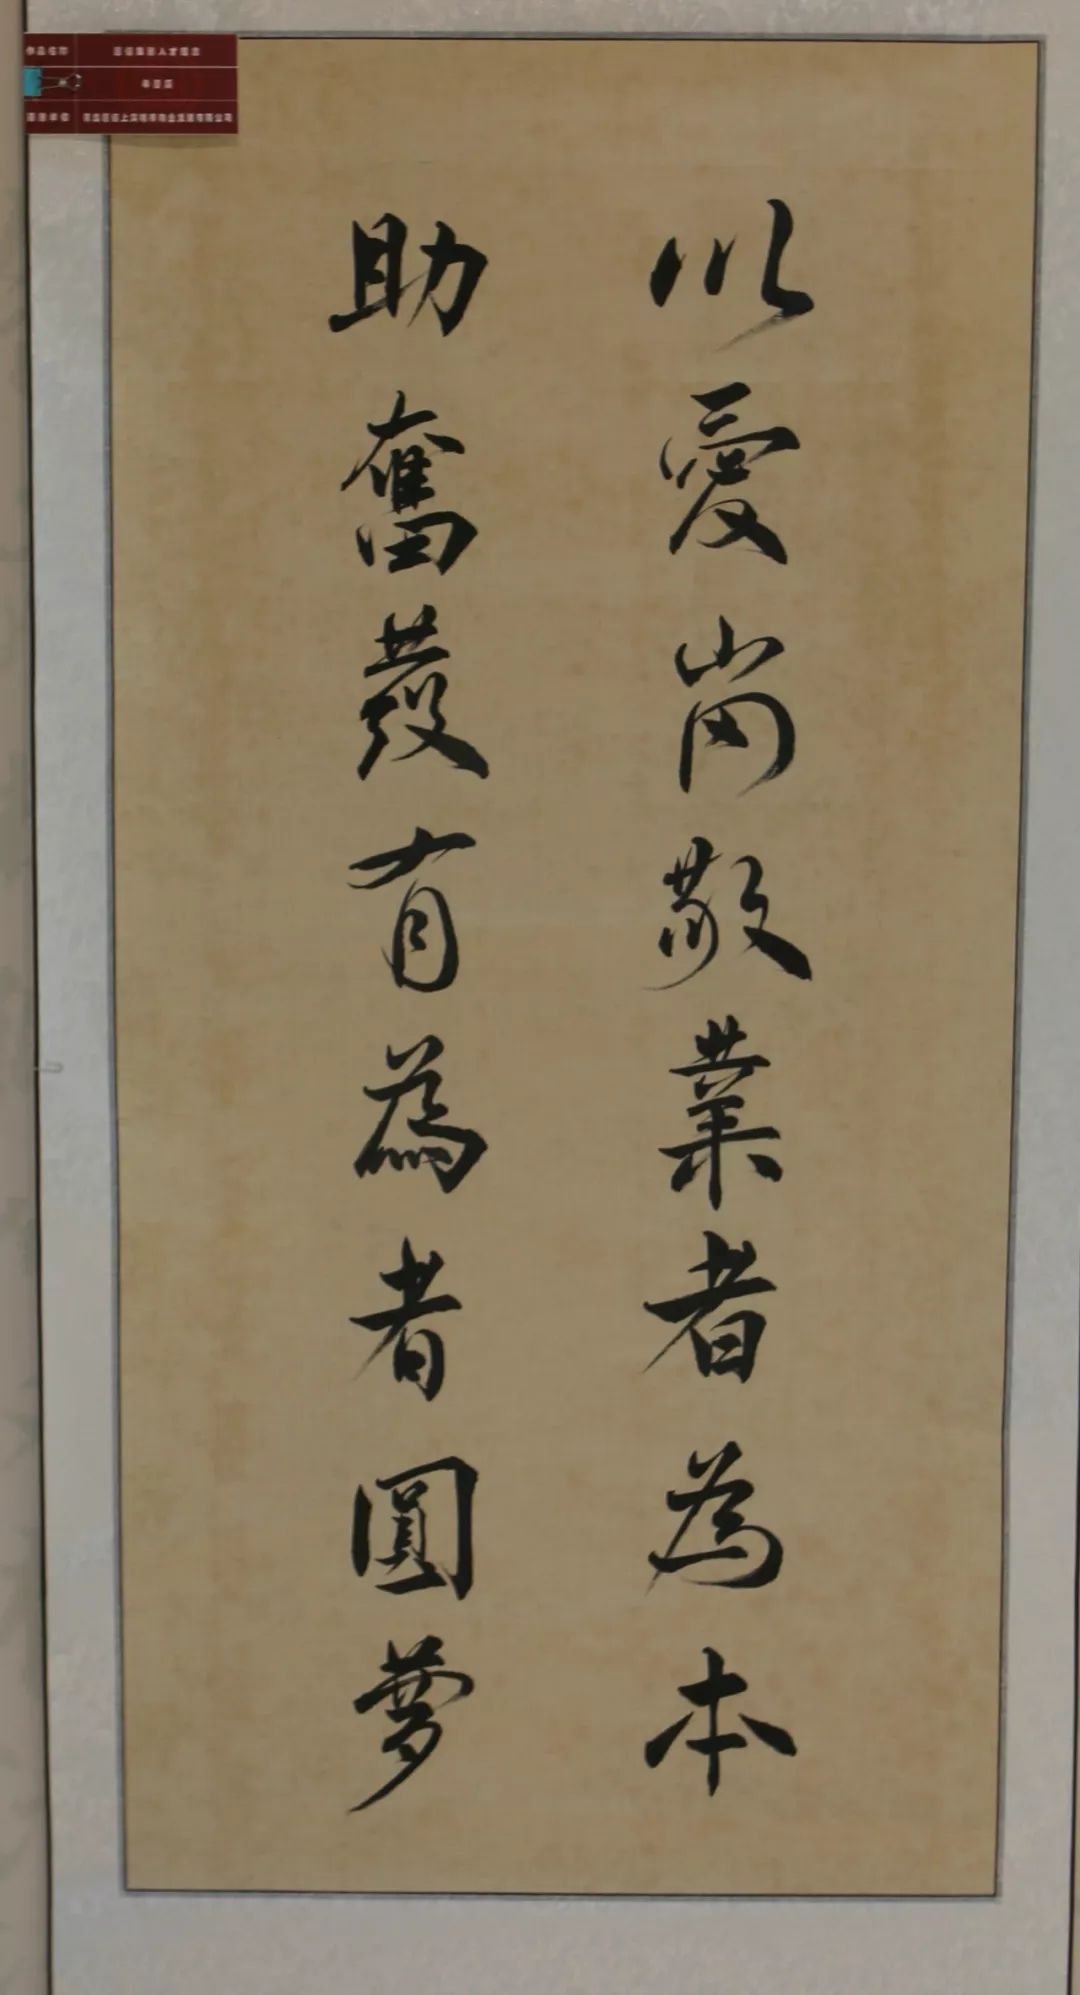 以愛崗敬業者為本
助奮發有為者圓夢
作品名称
人才理念